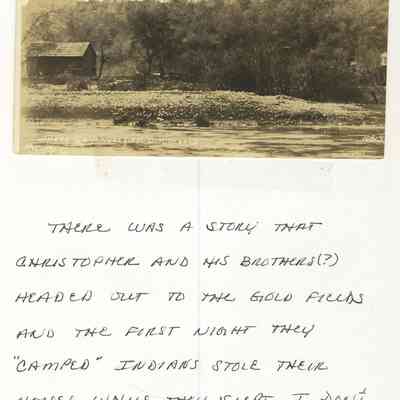 THERE WAS A STORY THAT
CHRISTOPHER AND HIS BROTHERS(?)
HEADED OUT TO THE GOLD FIELDS
AND THE FIRST NIGHT THEY
"CAMPED" INDIANS STOLE THEIR
HORSES WHILE THEY SLEPT. I DON'T